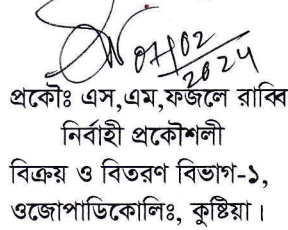 07/02/2024
প্রকৌঃ এস,এম,ফজলে রাব্বি
নির্বাহী প্রকৌশলী
বিক্রয় ও বিতরণ বিভাগ-১,
ওজোপাডিকোলিঃ, কুষ্টিয়া।